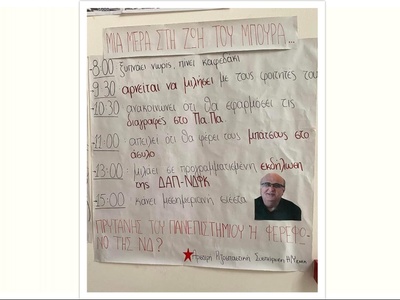 ΜΙΑ ΜΕΡΑ ΣΤΗ ΖΩΗ ΤΟΥ ΜΠΟΥΡΑ...
-8:00 ξυπνάει νωρίς, πίνει καφεδάκι
-9:30 αρνείται να μιλήσει με τους φοιτητές του
-10:30 ανακοινώνει ότι θα εφαρμόσει τις
διαγραφές στο Πα.Πα.
-11:00 απειλεί ότι θα φέρει τους μπάτσους στο
άσυλο
-13:00 : μιλάει σε προγραμματισμένη εκδήλωση
της ΔΑΠ-ΝΔΦΚ
-15:00 κάνει μεσημεριανή σιέστα
ΠΡΥΤΑΝΗΣ ΤΟΥ ΠΑΝΕΠΙΣΤΗΜΙΟΥ Ή ΦΕΡΕΦΩ-
ΝΟ ΤΗΣ ΝΔ?
Αριστερή